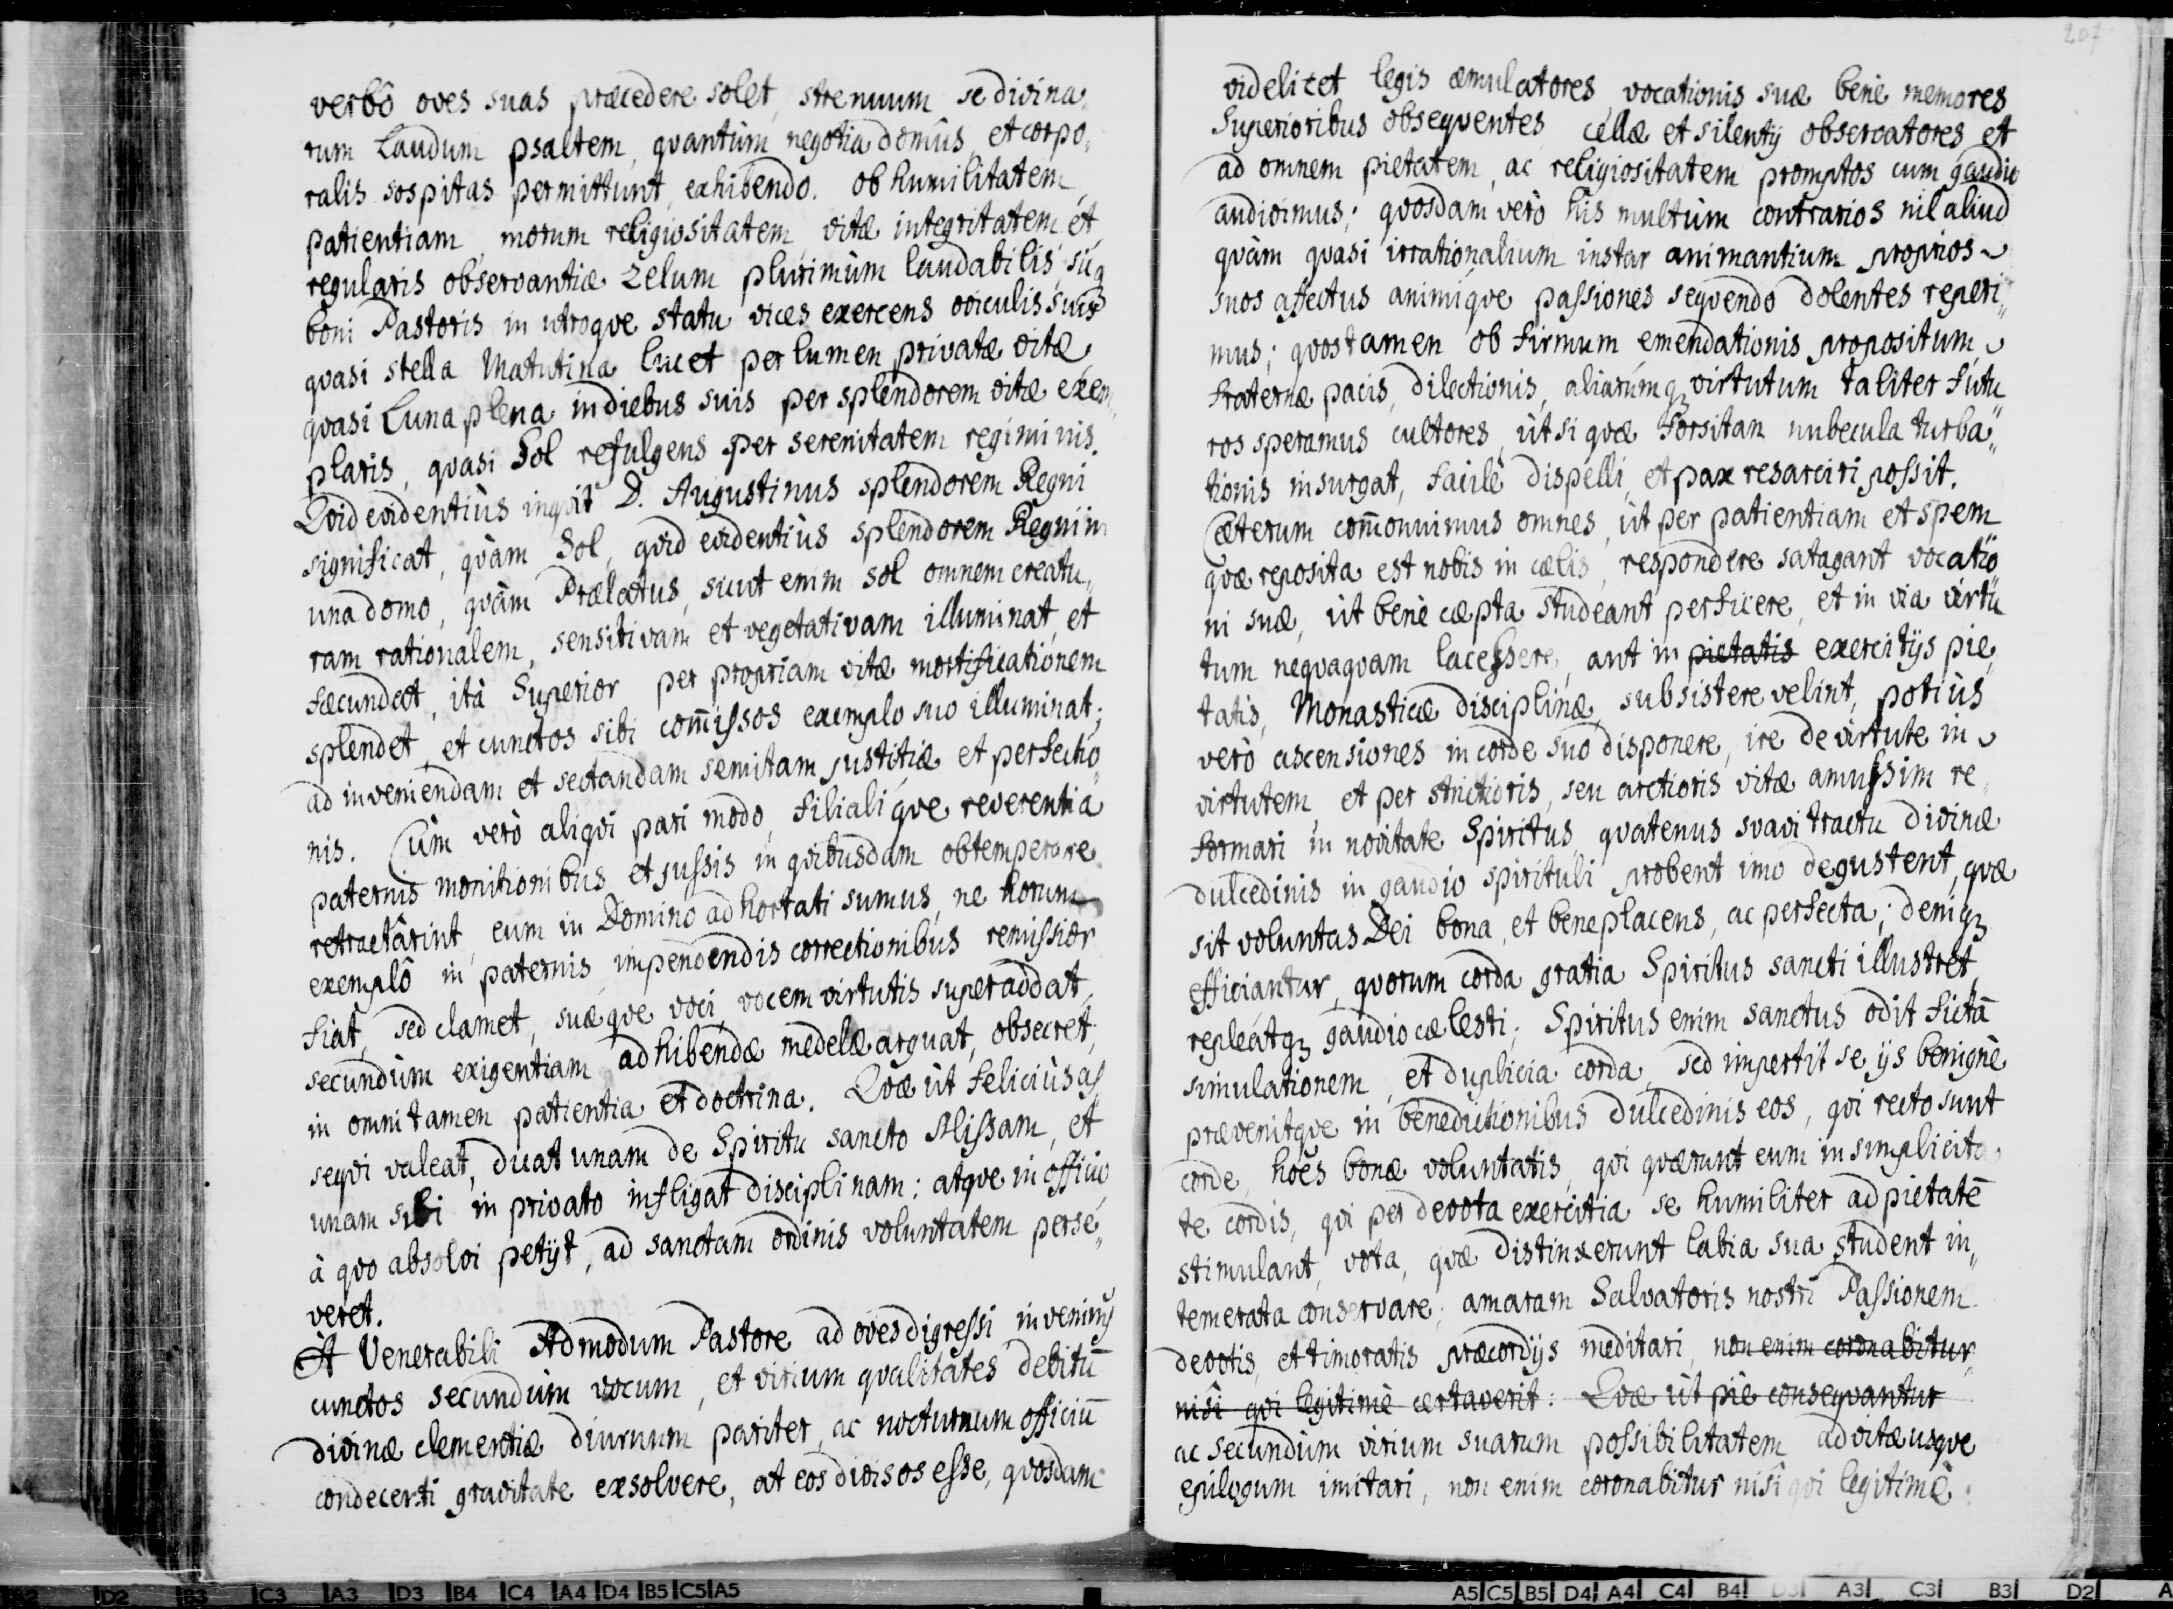 verbô oves suas præcedere solet, strenuum se divina,,
rum Laudum psaltem, qvantùm negotia domûs, et corpo,,
ralis sospitas permittunt, exhibendo. ob humilitatem,
patientiam, morum religiositatem, vitæ integritatem et
regularis observantiæ zelum plurimùm laudabilis,
boni Pastoris in utroqve statu vices exercens oviculis suis
qvasi stella Matutina lucet per lumen privatæ vitæ
qvasi Luna plena in diebus suis per splendorem vitæ exem,,
plaris, qvasi Sol refulgens per serenitatem regiminis.
Qvid evidentiùs inqvit D. Augustinus splendorem Regni
significat, qvàm Sol, qvid evidentiùs splendorem Regni in
una domo, qvàm Prælatus, sicut enim sol omnem creatu,,
ram rationalem, sensitivam et vegetativam illuminat, et
fæcundat, ità Superior per propriam vitæ mortificationem
splendet, et cunctos sibi com̄issos exemplo suo illuminat;
ad inveniendam et sectandam semitam justitiæ et perfectio,,
nis. Cùm verò aliqvi pari modo, filialiqve reverentia
paternis monitionibus et jussis in qvibusdam obtemperare
retractârint, eum in Domino adhortati sumus, ne horum
exemplô in paternis impendendis correctionibus remissior
fiat, sed clamet, suæqve voci, vocem virtutis superaddat,
secundùm exigentiam adhibendæ medelæ arguat, obsecret,
in omni tamen patientia et doctrina. Qvæ ùt feliciùs as
seqvi valeat, dicat unam de Spiritu sancto Missam, et
unam sibi in privato infligat disciplinam: atqve in officio
à qvo absolvi petijt, ad sanctam ordinis voluntatem perse,,
veret.
A Venerabili Admodum Pastore ad oves digressi, invenimus
cunctos secundùm vocum, et virium qvalitates debitū
divinæ clementiæ diurnum pariter, ac nocturnum officiū
condecenti gravitate exsolvere, at eos divisos esse, qvosdam
207
videlicet legis æmulatores, vocationis suæ benè memores
Superioribus obseqventes, cellæ et silentij observatores, et
ad omnem pietatem, ac religiositatem promptos cum gaudio
audivimus; qvosdam verò his multùm contrarios nil aliud
qvàm qvasi irrationalium instar animantium proprios
suos affectus animiqve passiones seqvendo dolentes reperi,,
mus; qvos tamen ob firmum emendationis propositum,
fraternæ pacis, dilectionis, aliarumq; virtutum taliter futu
ros speramus cultores, ùt si qvæ forsitan nubecula turba,,
tionis insurgat, facilè dispelli, et pax resarciri possit.
Cæterum com̄onuimus omnes, ùt per patientiam et spem
qvæ reposita est nobis in cælis, respondere satagant vocatio
ni suæ, ùt benè cæpta studeant perficere, et in via virtu
tum neqvaqvam lacessere, aut in pietatis exercitijs pie,
tatis, Monasticæ disciplinæ, subsistere velint, potiùs
verò ascensiones in corde suo disponere, ire de virtute in
virtutem, et per strictioris, seu arctioris vitæ amussim re,,
formari in novitate Spiritus, qvatenus svavi tractu divinæ
dulcedinis in gaudio spirituli probent imo degustent, qvæ
sit voluntas Dei bona, et beneplacens, ac perfecta; deniq;
efficiantur, qvorum corda gratia Spiritus sancti illustret,
repleatq; gaudio cælesti; Spiritus enim sanctus odit fictā
simulationem, et duplicia corda, sed impertit se ijs benignè
prævenitqve in benedictionibus dulcedinis eos, qvi recto sunt
corde, hoēs bonæ voluntatis, qvi qværunt eum in simplicita,,
te cordis, qvi per devota exercitia se humiliter ad pietatē
stimulant, vota, qvæ distinxerunt labia sua student in,,
temerata conservare; amaram Salvatoris nostri Passionem
devotis, et timoratis præcordijs meditari, non enim coronabitur,
nisi qvi legitimè certaverit: Qvæ ùt piè conseqvantur
ac secundùm virium suarum possibilitatem ad vitæ usqve
epilogum imitari, non enim coronabitur nisi qvi legitimè
A5 C5 B5 D4 A4 C4 B4 D3 A3 C3 B3 D2
D2 B3 C3 A3 D3 B4 C4 A4 D4 B5 C5 A5